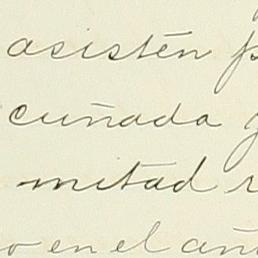 asistén
cuñada
mitad
o en el añ